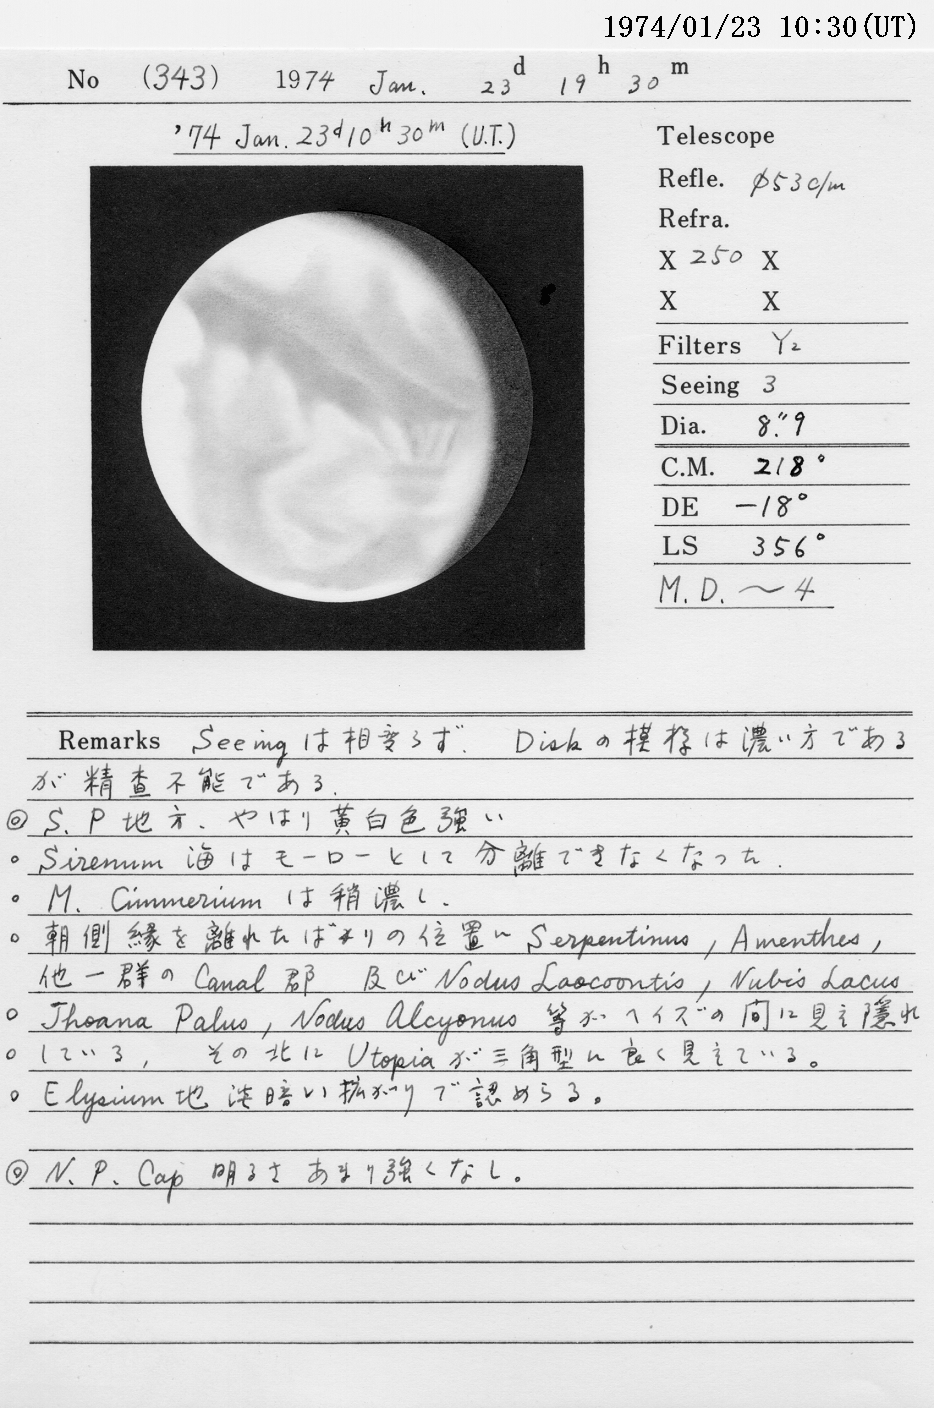 1974/01/23 10:30(UT)
No (343) 1974 Jan. 23d 19h 30m
'74 Jan. 23d10h30m (U.T.)
Telescope
Refle. φ53c/m
Refra.
X 250 X
X X
Filters Y2
Seeing 3
Dia. 8."9
C.M. 218°
DE -18°
LS 356°
M.D. ～4
Remarks Seeingは相変らず. Diskの模様は濃い方である
が精査不能である.
◎ S.P地方、やはり黄白色強い
○ Sirenum 海はモーローとして分離できなくなった.
○ M. Cimmerium は稍濃し.
○ 朝側縁を離れたばかりの位置に Serpentinus, Amenthes,
他一群の Canal 郡 及び Nodus Laocoontis, Nubis Lacus
○ Thoana Palus, Nodus Alcyonus 等がヘイズの間に見え隠れ
○ している, その北に Utopia が三角型に良く見えている。
○ Elysium地 淡暗い拡がりで認めらる。
◎ N.P. Cap 明るさあまり強くなし。